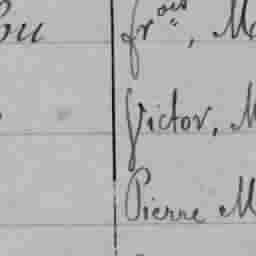 frois, M
Victor, M
Pierre M